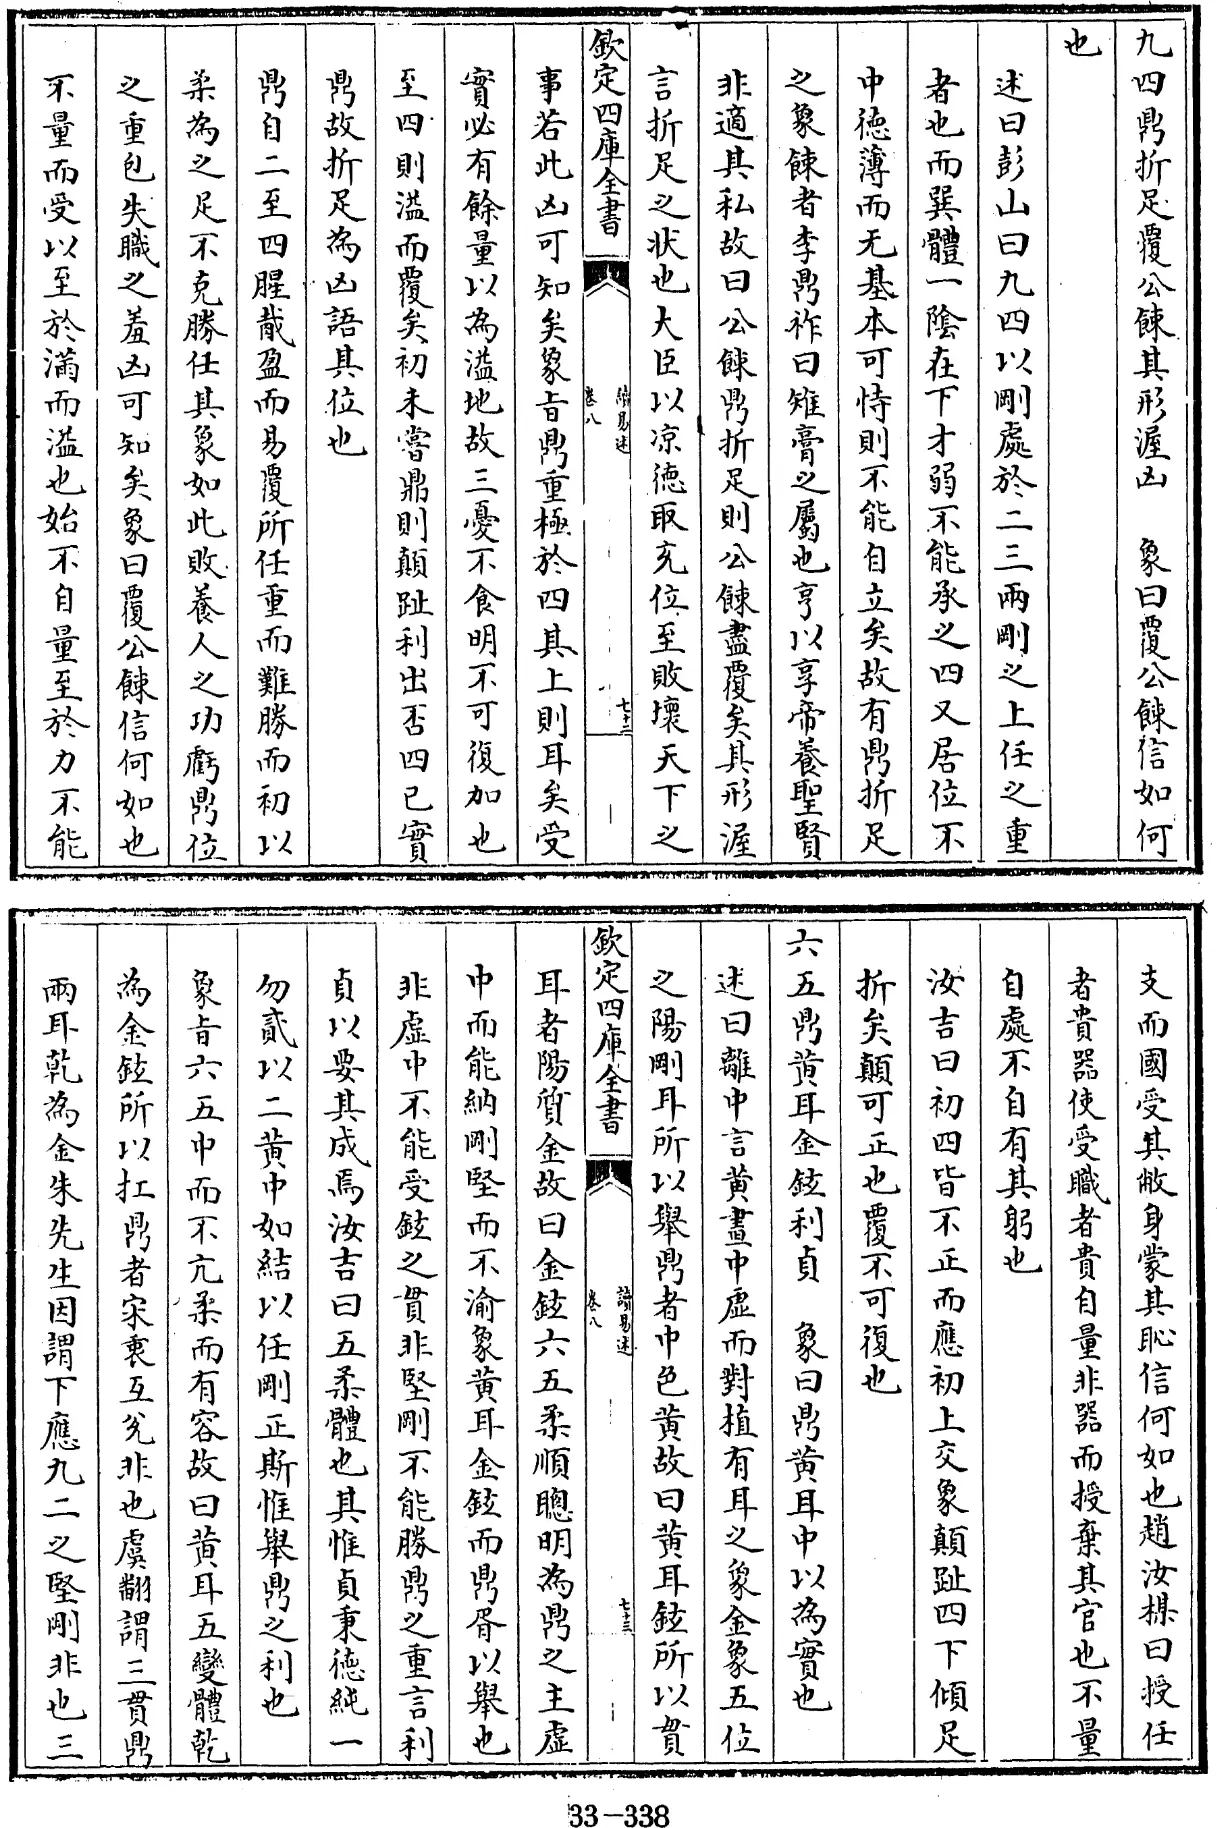 九四鼎折足覆公餗其形渥凶　象曰覆公餗信如何
也
述曰彭山曰九四以剛處於二三兩剛之上任之重
者也而巽體一陰在下才弱不能承之四又居位不
中德薄而无基本可恃則不能自立矣故有鼎折足
之象餗者李鼎祚曰雉膏之屬也亨以享帝養聖賢
非適其私故曰公餗鼎折足則公餗盡覆矣其形渥
言折足之狀也大臣以凉德取充位至敗壞天下之
欽定四庫全書
讀易述
卷八
七十二
事若此凶可知矣象旨鼎重極於四其上則耳矣受
實必有餘量以為溢地故三憂不食明不可復加也
至四則溢而覆矣初未嘗鼎則顛趾利出否四已實
鼎故折足為凶語其位也
鼎自二至四腥胾盈而易覆所任重而難勝而初以
柔為之足不克勝任其象如此敗養人之功虧鼎位
之重包失職之羞凶可知矣象曰覆公餗信何如也
不量而受以至於滿而溢也始不自量至於力不能
支而國受其敝身蒙其恥信何如也趙汝楳曰授任
者貴器使受職者貴自量非器而授棄其官也不量
自處不自有其躬也
汝吉曰初四皆不正而應初上交象顛趾四下傾足
折矣顛可正也覆不可復也
六五鼎黄耳金鉉利貞　象曰鼎黄耳中以為實也
述曰離中言黄畫中虛而對植有耳之象金象五位
之陽剛耳所以舉鼎者中色黄故曰黄耳鉉所以貫
欽定四庫全書
讀易述
卷八
七十三
耳者陽質金故曰金鉉六五柔順聰明為鼎之主虛
中而能納剛堅而不渝象黄耳金鉉而鼎胥以舉也
非虛中不能受鉉之貫非堅剛不能勝鼎之重言利
貞以要其成焉汝吉曰五柔體也其惟貞秉德純一
勿貳以二黄中如結以任剛正斯惟舉鼎之利也
象旨六五中而不亢柔而有容故曰黄耳五變體乾
為金鉉所以扛鼎者宋衷互兊非也虞翻謂三貫鼎
兩耳乾為金朱先生因謂下應九二之堅剛非也三
33-338